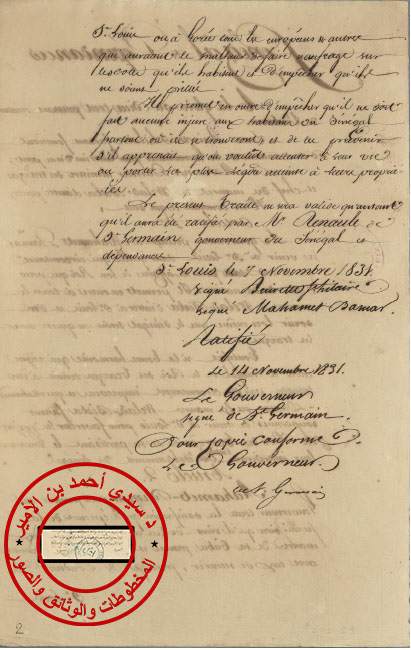 St. Louis ou à Gorée tous les européens & autres
qui auraient le malheur de faire naufrage sur
la côte qu'ils habitent et d'empêcher qu'ils
ne soient pillés.
Il promet en outre d'empêcher qu'il ne soit
fait aucune injure aux habitans du Sénégal
partout où ils se trouveront et de les prévenir
s'il apprenait qu'on voulût attenter à leur vie
ou porter la plus légère atteinte à leurs proprié-
tés.
Le présent Traité ne sera valide qu'autant
qu'il aura été ratifié par Mr. Renault de
St. Germain gouverneur du Sénégal et
dépendances.
St. Louis le 7 Novembre 1831.
signé
signé Mahamet
Ratifié
Le 14 Novembre 1831.
Le Gouverneur
signé de St. Germain.
Pour copie conforme
Le Gouverneur.
St. Germain
د. سيدي أحمد بن الأمير
المخطوطات والوثائق والصور
2